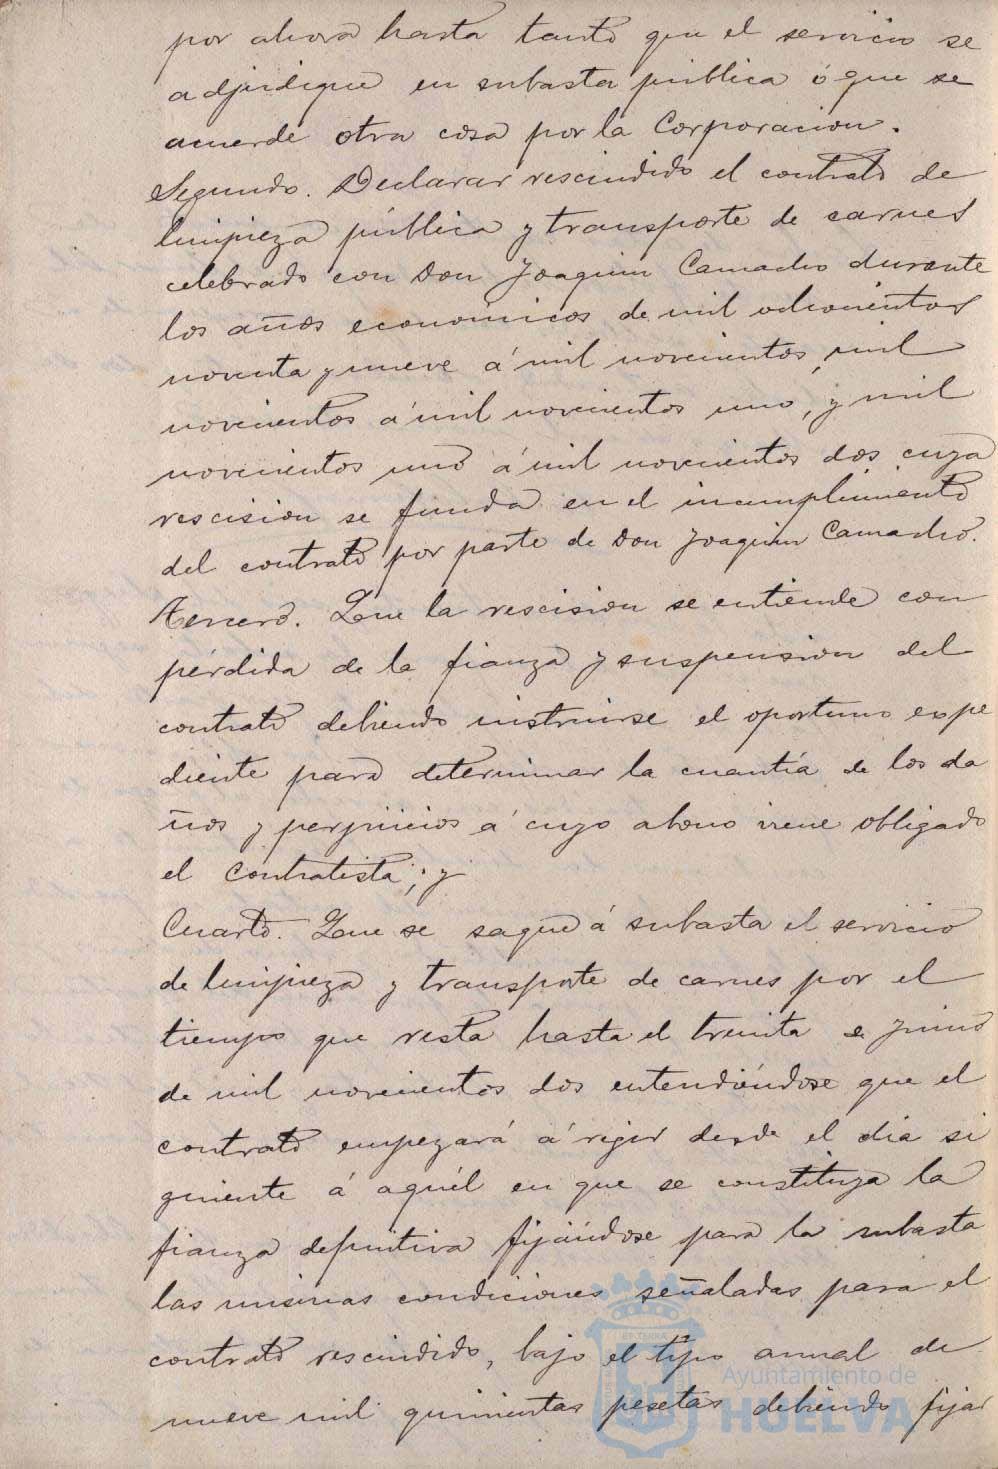 por ahora hasta tanto que el servicio se
adjudique en subasta pública ó que se
acuerde otra cosa por la Corporacion.
Segundo. Declarar rescindido el contrato de
limpieza pública y transporte de carnes
celebrado con Don Joaquin Camacho durante
los años económicos de mil ochocientos
noventa y nueve á mil novecientos, mil
novecientos á mil novecientos uno, y mil
novecientos uno á mil novecientos dos cuya
rescision se funda en el incumplimiento
del contrato por parte de Don Joaquin Camacho.
Tercero. Que la rescision se entiende con
pérdida de la fianza y suspension del
contrato debiendo instruirse el oportuno expe
diente para determinar la cuantía de los da
ños y perjuicios á cuyo abono viene obligado
el contratista; y
Cuarto. Que se saque á subasta el servicio
de limpieza y transporte de carnes por el
tiempo que resta hasta el treinta de Junio
de mil novecientos dos entendiéndose que el
contrato empezará á regir desde el dia si
guiente á aquél en que se constituya la
fianza definitiva fijándose para la subasta
las mismas condiciones señaladas para el
contrato rescindido, bajo el tipo anual de
nueve mil quinientas pesetas debiendo fijar
Ayuntamiento de
HUELVA